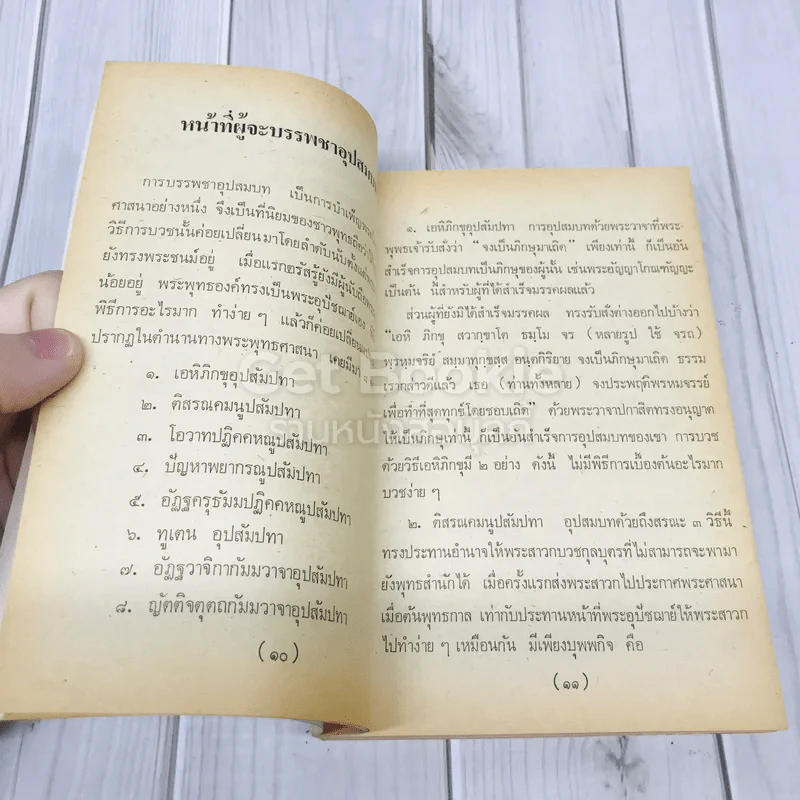 หน้าที่ผู้จะบรรพชาอุปสมบท
การบรรพชาอุปสมบท เป็นการบำเพ็ญ
ศาสนาอย่างหนึ่ง จึงเป็นที่นิยมของชาวพุทธ
วิธีการบวชนั้นค่อยเปลี่ยนมาโดยลำดับนับตั้งแต่
ยังทรงพระชนม์อยู่ เมื่อแรกตรัสรู้ยังมีผู้นับถือ
น้อยอยู่ พระพุทธองค์ทรงเป็นพระอุปัชฌาย์เอง
พิธีการอะไรมาก ทำง่าย ๆ แล้วก็ค่อยเปลี่ยน
ปรากฏในตำนานทางพระพุทธศาสนา เคยมีมา
๑. เอหิภิกขุอุปสัมปทา
๒. ติสรณคมนูปสัมปทา
๓. โอวาทปฏิคคหณูปสัมปทา
๔. ปัญหาพยากรณูปสัมปทา
๕. อัฏฐครุธัมมปฏิคคหณูปสัมปทา
๖. ทูเตน อุปสัมปทา
๗. อัฏฐวาจิกากัมมวาจาอุปสัมปทา
๘. ญัตติจตุตถกัมมวาจาอุปสัมปทา
(๑๐)
๑. เอหิภิกขุอุปสัมปทา การอุปสมบทด้วยพระวาจาที่พระ-
พุทธเจ้ารับสั่งว่า “จงเป็นภิกษุมาเถิด” เพียงเท่านี้ ก็เป็นอัน
สำเร็จการอุปสมบทเป็นภิกษุของผู้นั้น เช่นพระอัญญาโกณฑัญญะ
เป็นต้น นี้สำหรับผู้ที่ได้สำเร็จมรรคผลแล้ว
ส่วนผู้ที่ยังมิได้สำเร็จมรรคผล ทรงรับสั่งต่างออกไปบ้างว่า
“เอหิ ภิกขุ สวากฺขาโต ธมฺโม จร (หลายรูป ใช้ จรถ)
พฺรหฺมจริยํ สมฺมาทุกฺขสฺส อนฺตกิริยาย จงเป็นภิกษุมาเถิด ธรรม
เรากล่าวดีแล้ว เธอ (ท่านทั้งหลาย) จงประพฤติพรหมจรรย์
เพื่อทำที่สุดทุกข์โดยชอบเถิด” ด้วยพระวาจาปกาสิตทรงอนุญาต
ให้เป็นภิกษุเท่านี้ ก็เป็นอันสำเร็จการอุปสมบทของเขา การบวช
ด้วยวิธีเอหิภิกขุมี ๒ อย่าง ดังนี้ ไม่มีพิธีการเบื้องต้นอะไรมาก
บวชง่าย ๆ
๒. ติสรณคมนูปสัมปทา อุปสมบทด้วยถึงสรณะ ๓ วิธีนี้
ทรงประทานอำนาจให้พระสาวกบวชกุลบุตรที่ไม่สามารถจะพามา
ยังพุทธสำนักได้ เมื่อครั้งแรกส่งพระสาวกไปประกาศพระศาสนา
เมื่อต้นพุทธกาล เท่ากับประทานหน้าที่พระอุปัชฌาย์ให้พระสาวก
ไปทำง่าย ๆ เหมือนกัน มีเพียงบุพพกิจ คือ
(๑๑)
Get Bookie